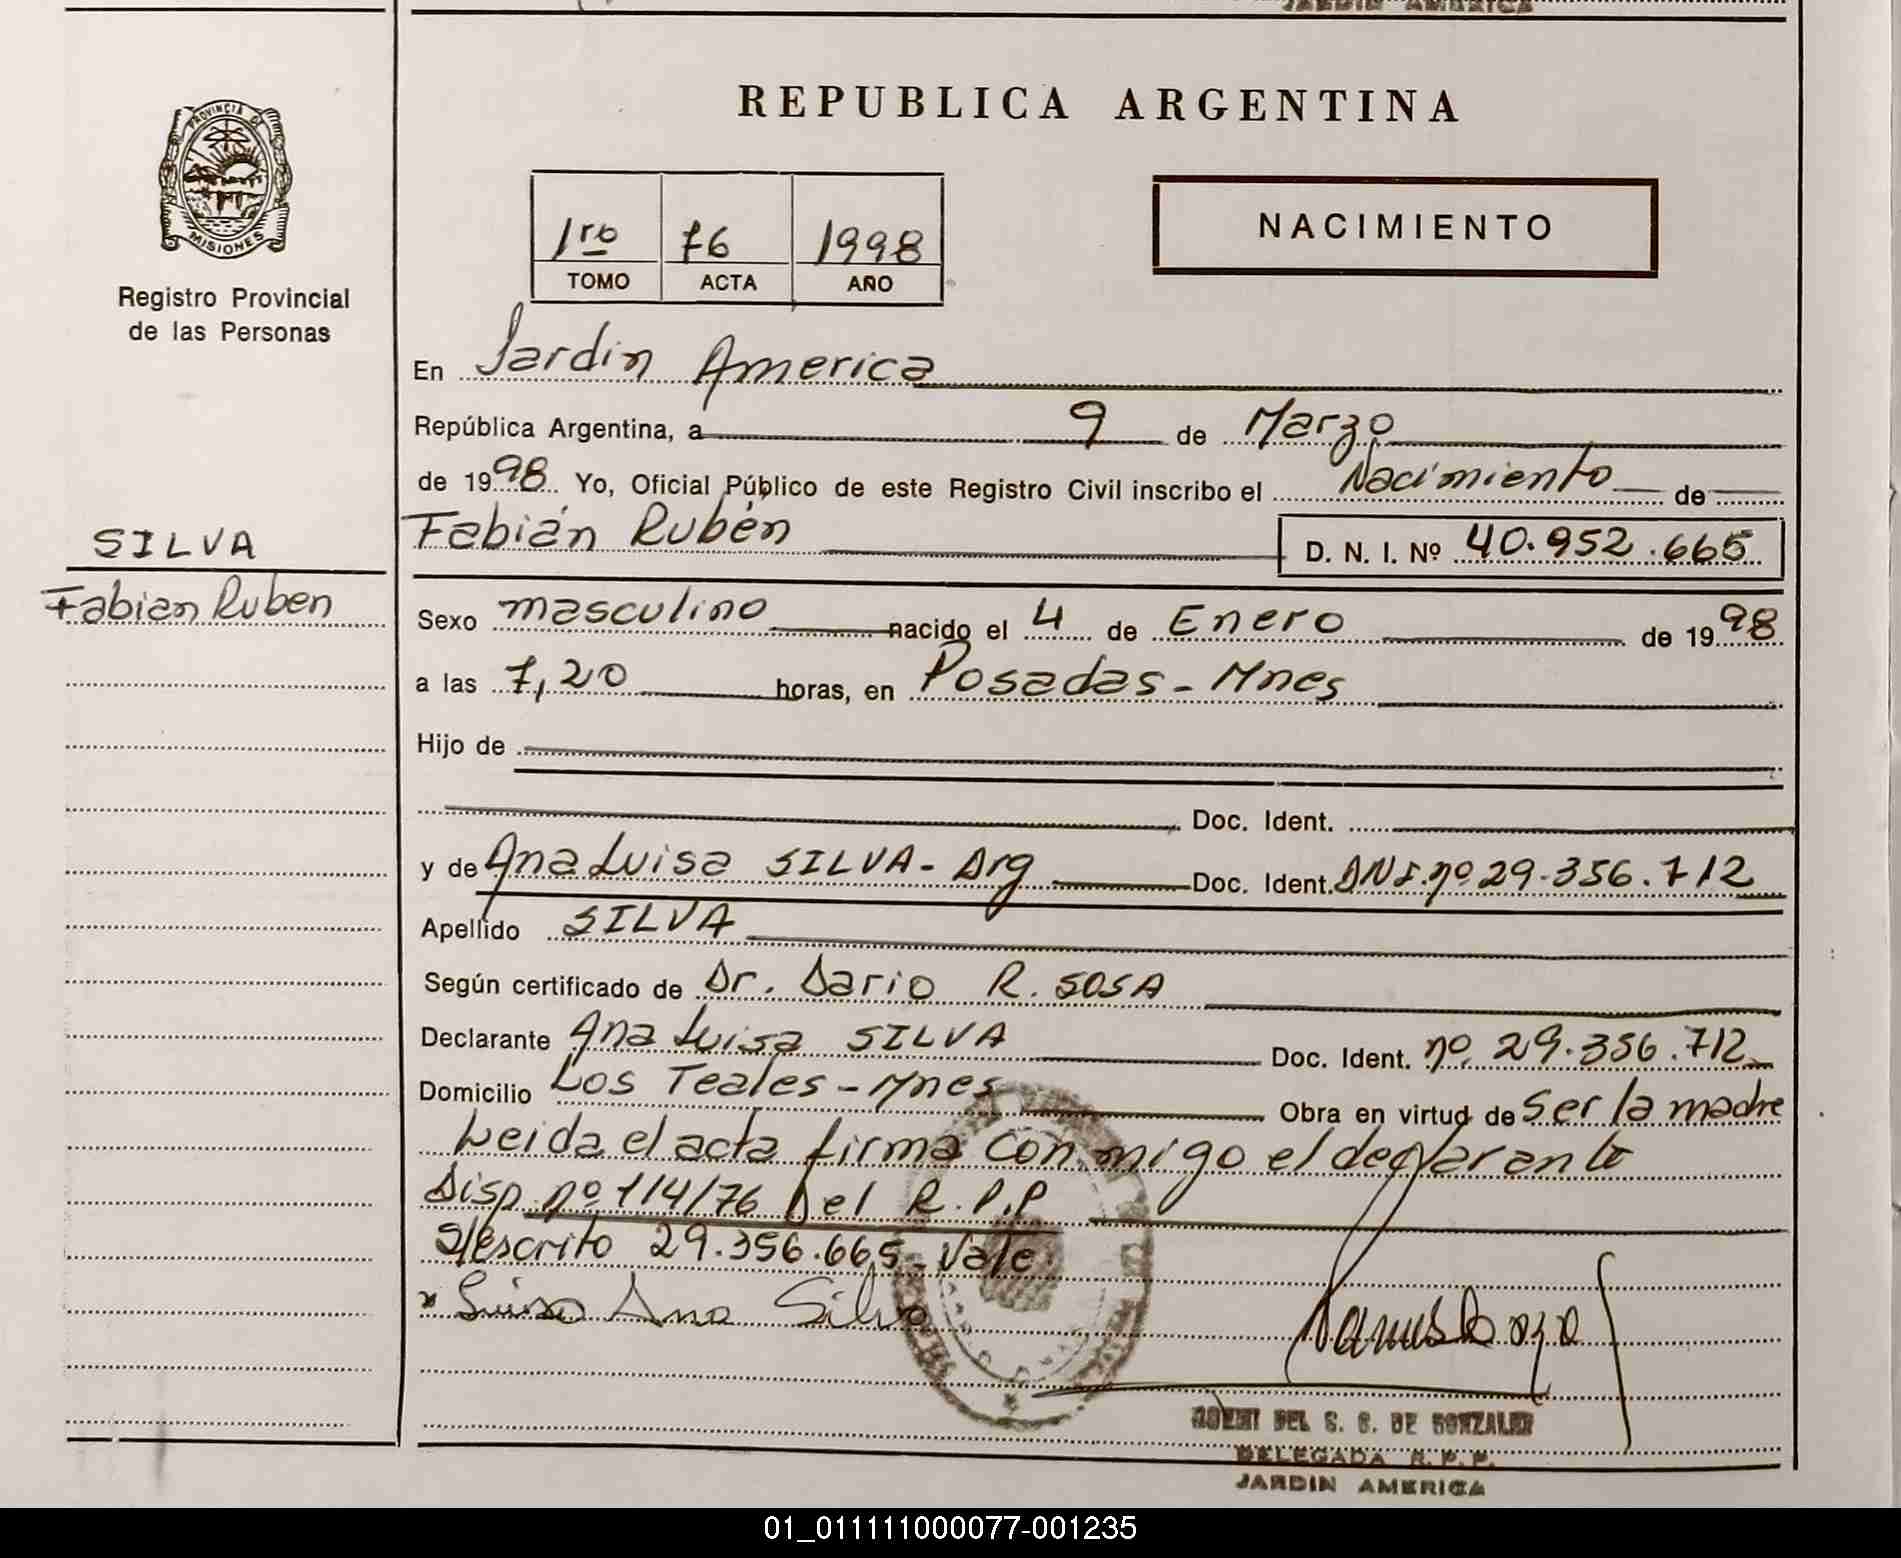 JARDIN AMERICA
PROVINCIA DE
MISIONES
Registro Provincial
de las Personas
SILVA
Fabian Ruben
REPUBLICA ARGENTINA
1ro 76 1998
TOMO ACTA AÑO
NACIMIENTO
En Jardin America
República Argentina, a 9 de Marzo
de 1998 Yo, Oficial Público de este Registro Civil inscribo el Nacimiento de
Fabián Rubén D. N. I. Nº 40.952.665
Sexo masculino nacido el 4 de Enero de 1998
a las 7,20 horas, en Posadas - Mnes
Hijo de
Doc. Ident.
y de Ana Luisa SILVA - Arg Doc. Ident. DNI. nº 29.356.712
Apellido SILVA
Según certificado de Dr. Dario R. SOSA
Declarante Ana Luisa SILVA Doc. Ident. nº 29.356.712
Domicilio Los Teales - Mnes Obra en virtud de Ser la madre
Leida el acta firma con migo el declarante
Disp. nº 114/76 Del R.P.P
S/escrito 29.356.665 - Vale
Luisa Ana Silva
DEL S. G. DE GONZALEZ
DELEGADA R. P. P.
JARDIN AMERICA
01_011111000077-001235